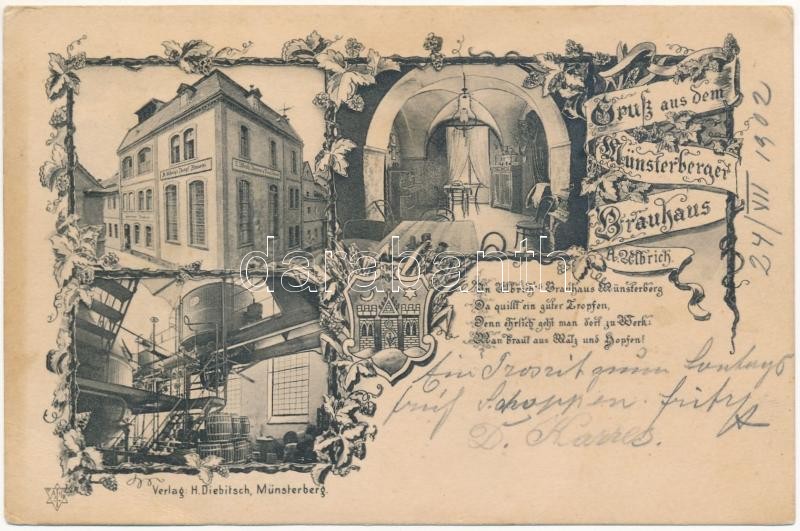 Gruß aus dem
Münsterberger
Bräuhaus
A. Ulbrich.
24/VII 1902
In Ulbrich's Brauhaus Münsterberg
Da quillt ein guter Tropfen,
Denn ehrlich geht man dort zu Werk:
Man braut aus Malz und Hopfen!
Ein Prosit zum Sontags
früh Schoppen.
D. Karres.
Verlag: H. Diebitsch, Münsterberg.
darabanth